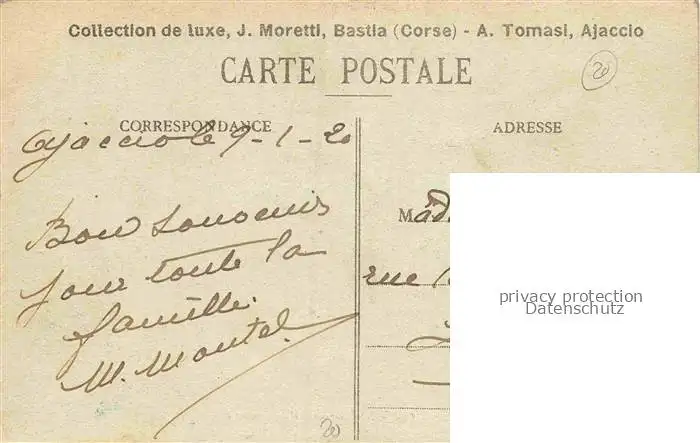 Collection de luxe, J. Moretti, Bastia (Corse) - A. Tomasi, Ajaccio
CARTE POSTALE
20
CORRESPONDANCE
ADRESSE
Ajaccio le 9-1-20
Bon Souvenir
pour toute la
famille.
M. Montel
Mad
rue
privacy protection
Datenschutz
20